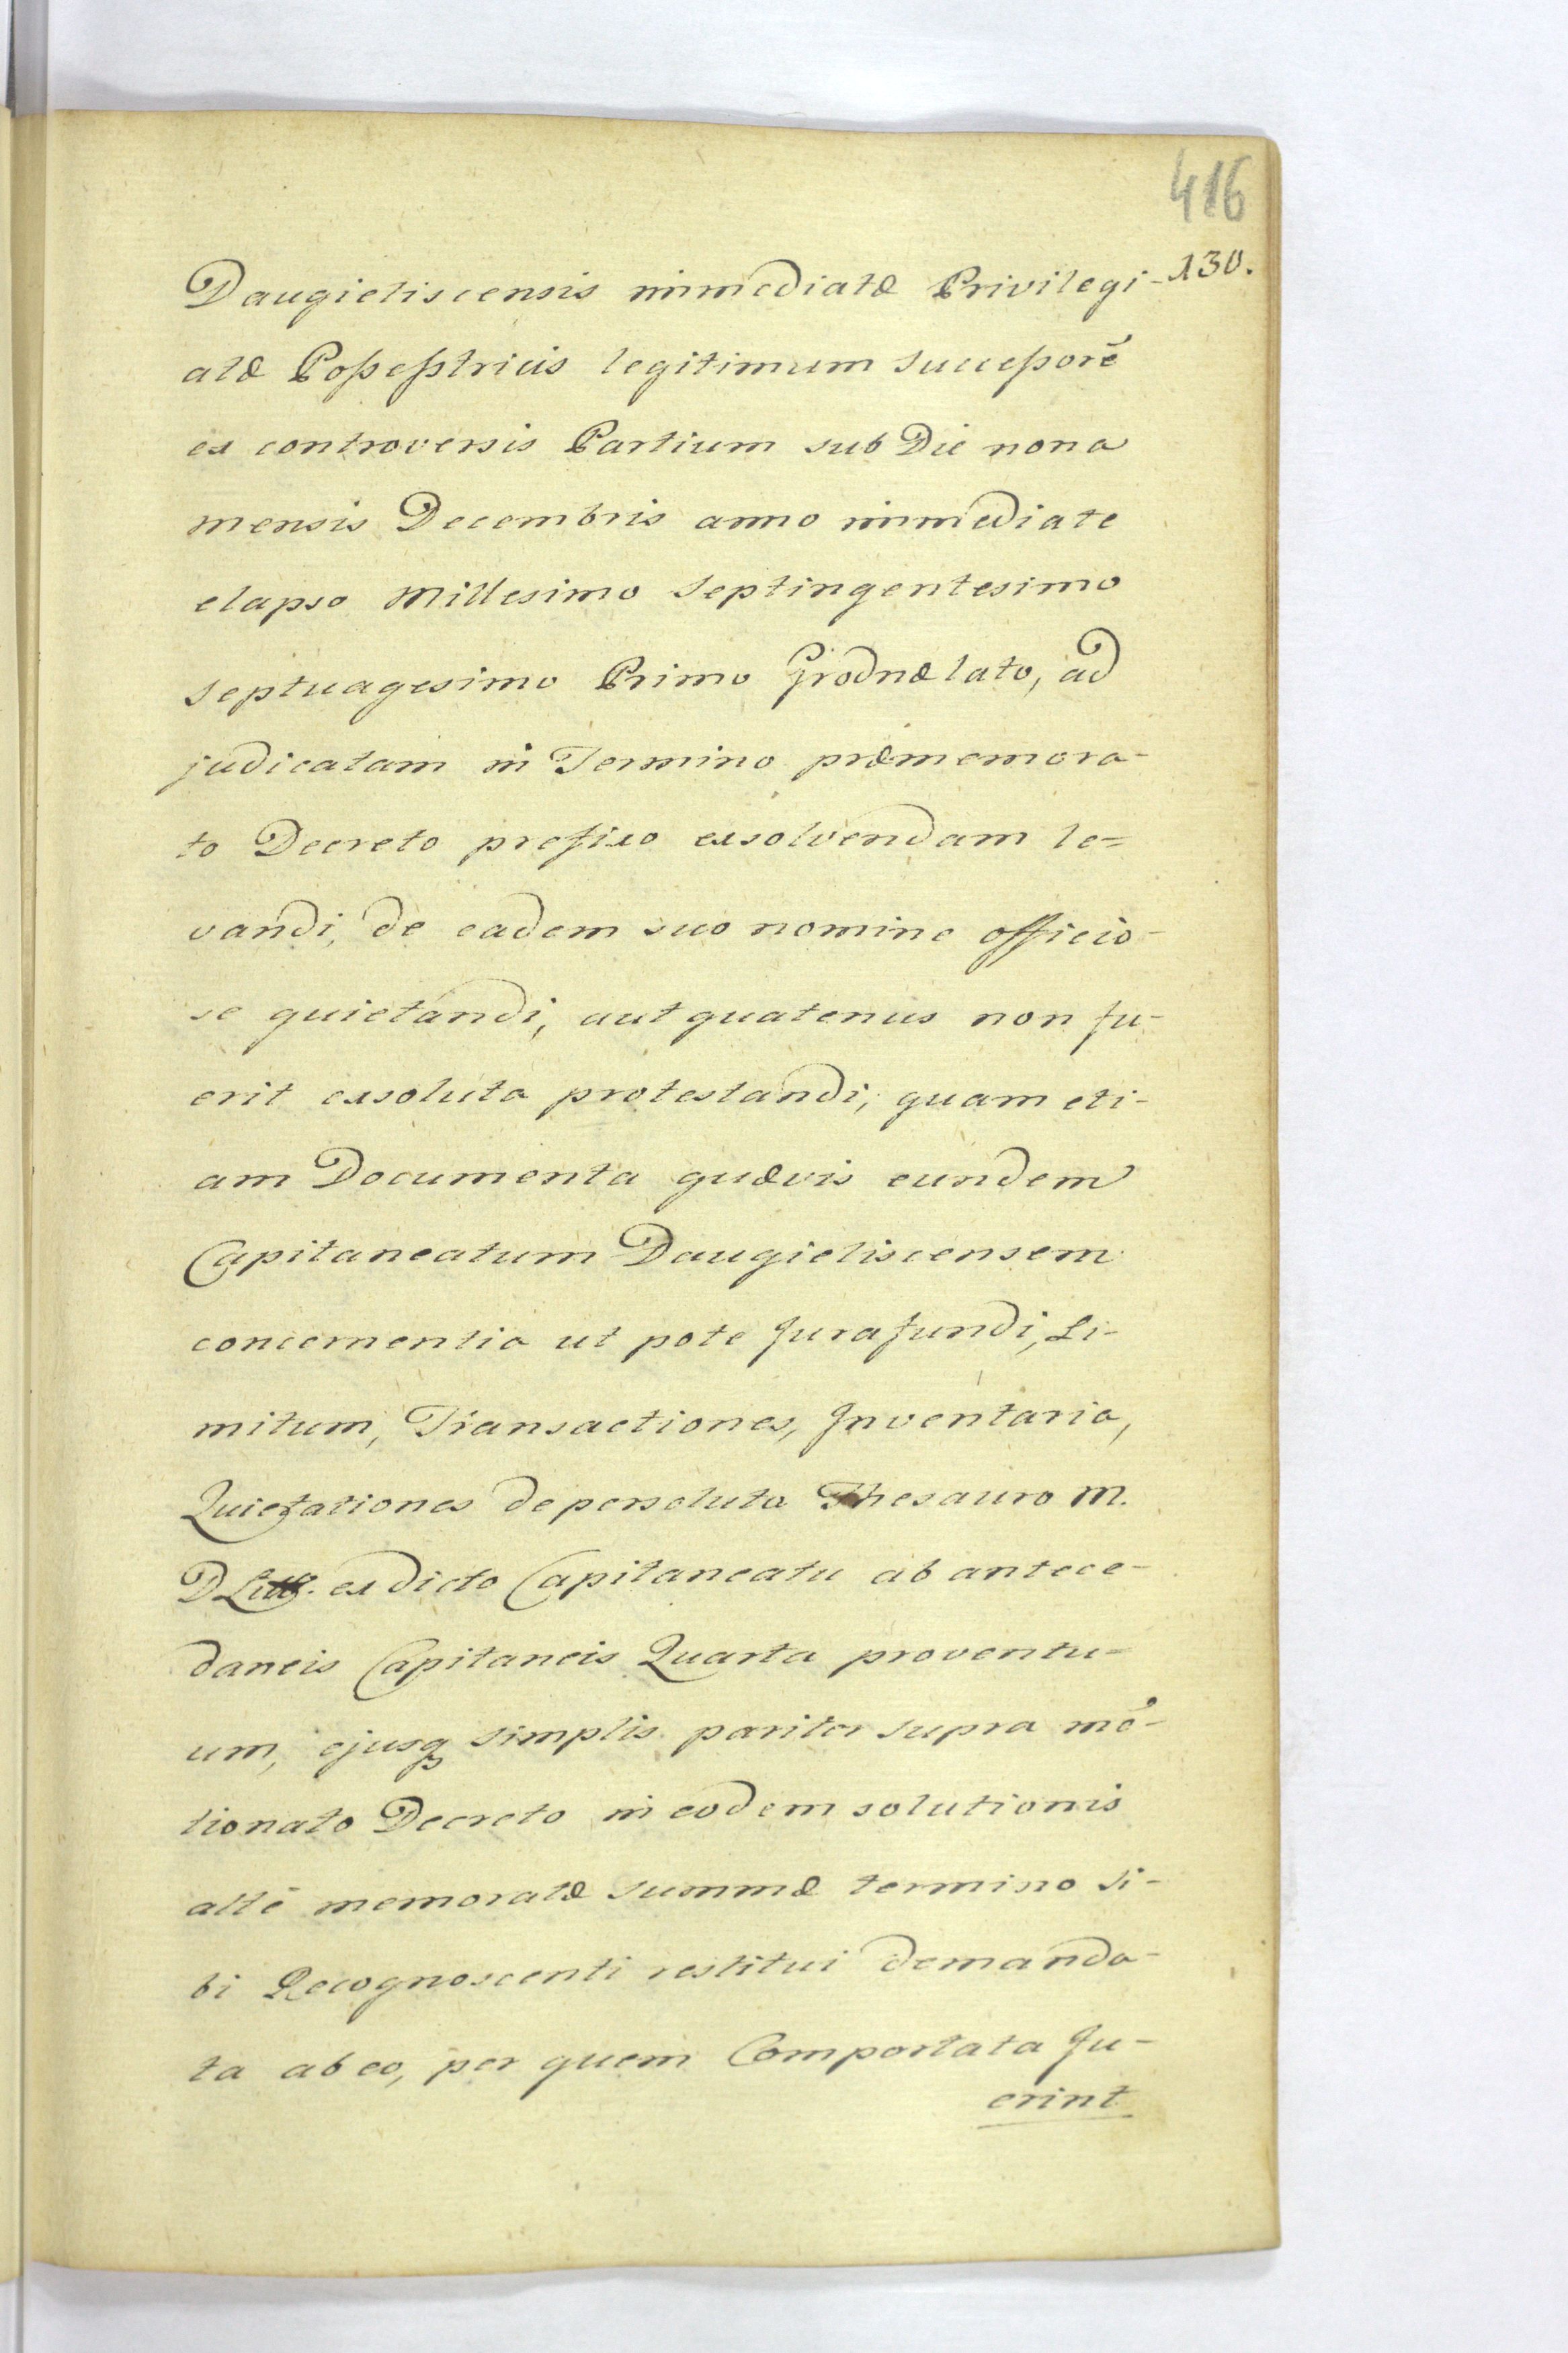 416
130.
Daugieliscensis immediatæ Privilegi-
atæ Poßeßtricis legitimum Succeßorē
ex controversis Partium sub Die nona
mensis Decembris anno immediate
elapso Millesimo Septingentesimo
Septuagesimo Primo Grodnæ lato, ad
judicatam in Termino præmemora-
to Decreto prefixo exsolvendam le=
vandi, de eadem suo nomine officio-
se quietandi, aut quatenus non fu-
erit exsoluta protestandi; quam eti-
am Documenta quævis eundem
Capitaneatum Daugieliscensem
concernentia ut pote Jura fundi, Li-
mitum, Transactiones, Inventaria,
Quietationes de persoluta Thesauro M.
D Litt. ex dicto Capitaneatu ab antece-
daneis Capitaneis Quarta proventu=
um, ejusq simplis pariter supra mē-
tionato Decreto in eodem solutionis
altè memoratæ summæ termino si-
bi Recognoscenti restitui demanda-
ta ab eo, per quem Comportata fu-
erint